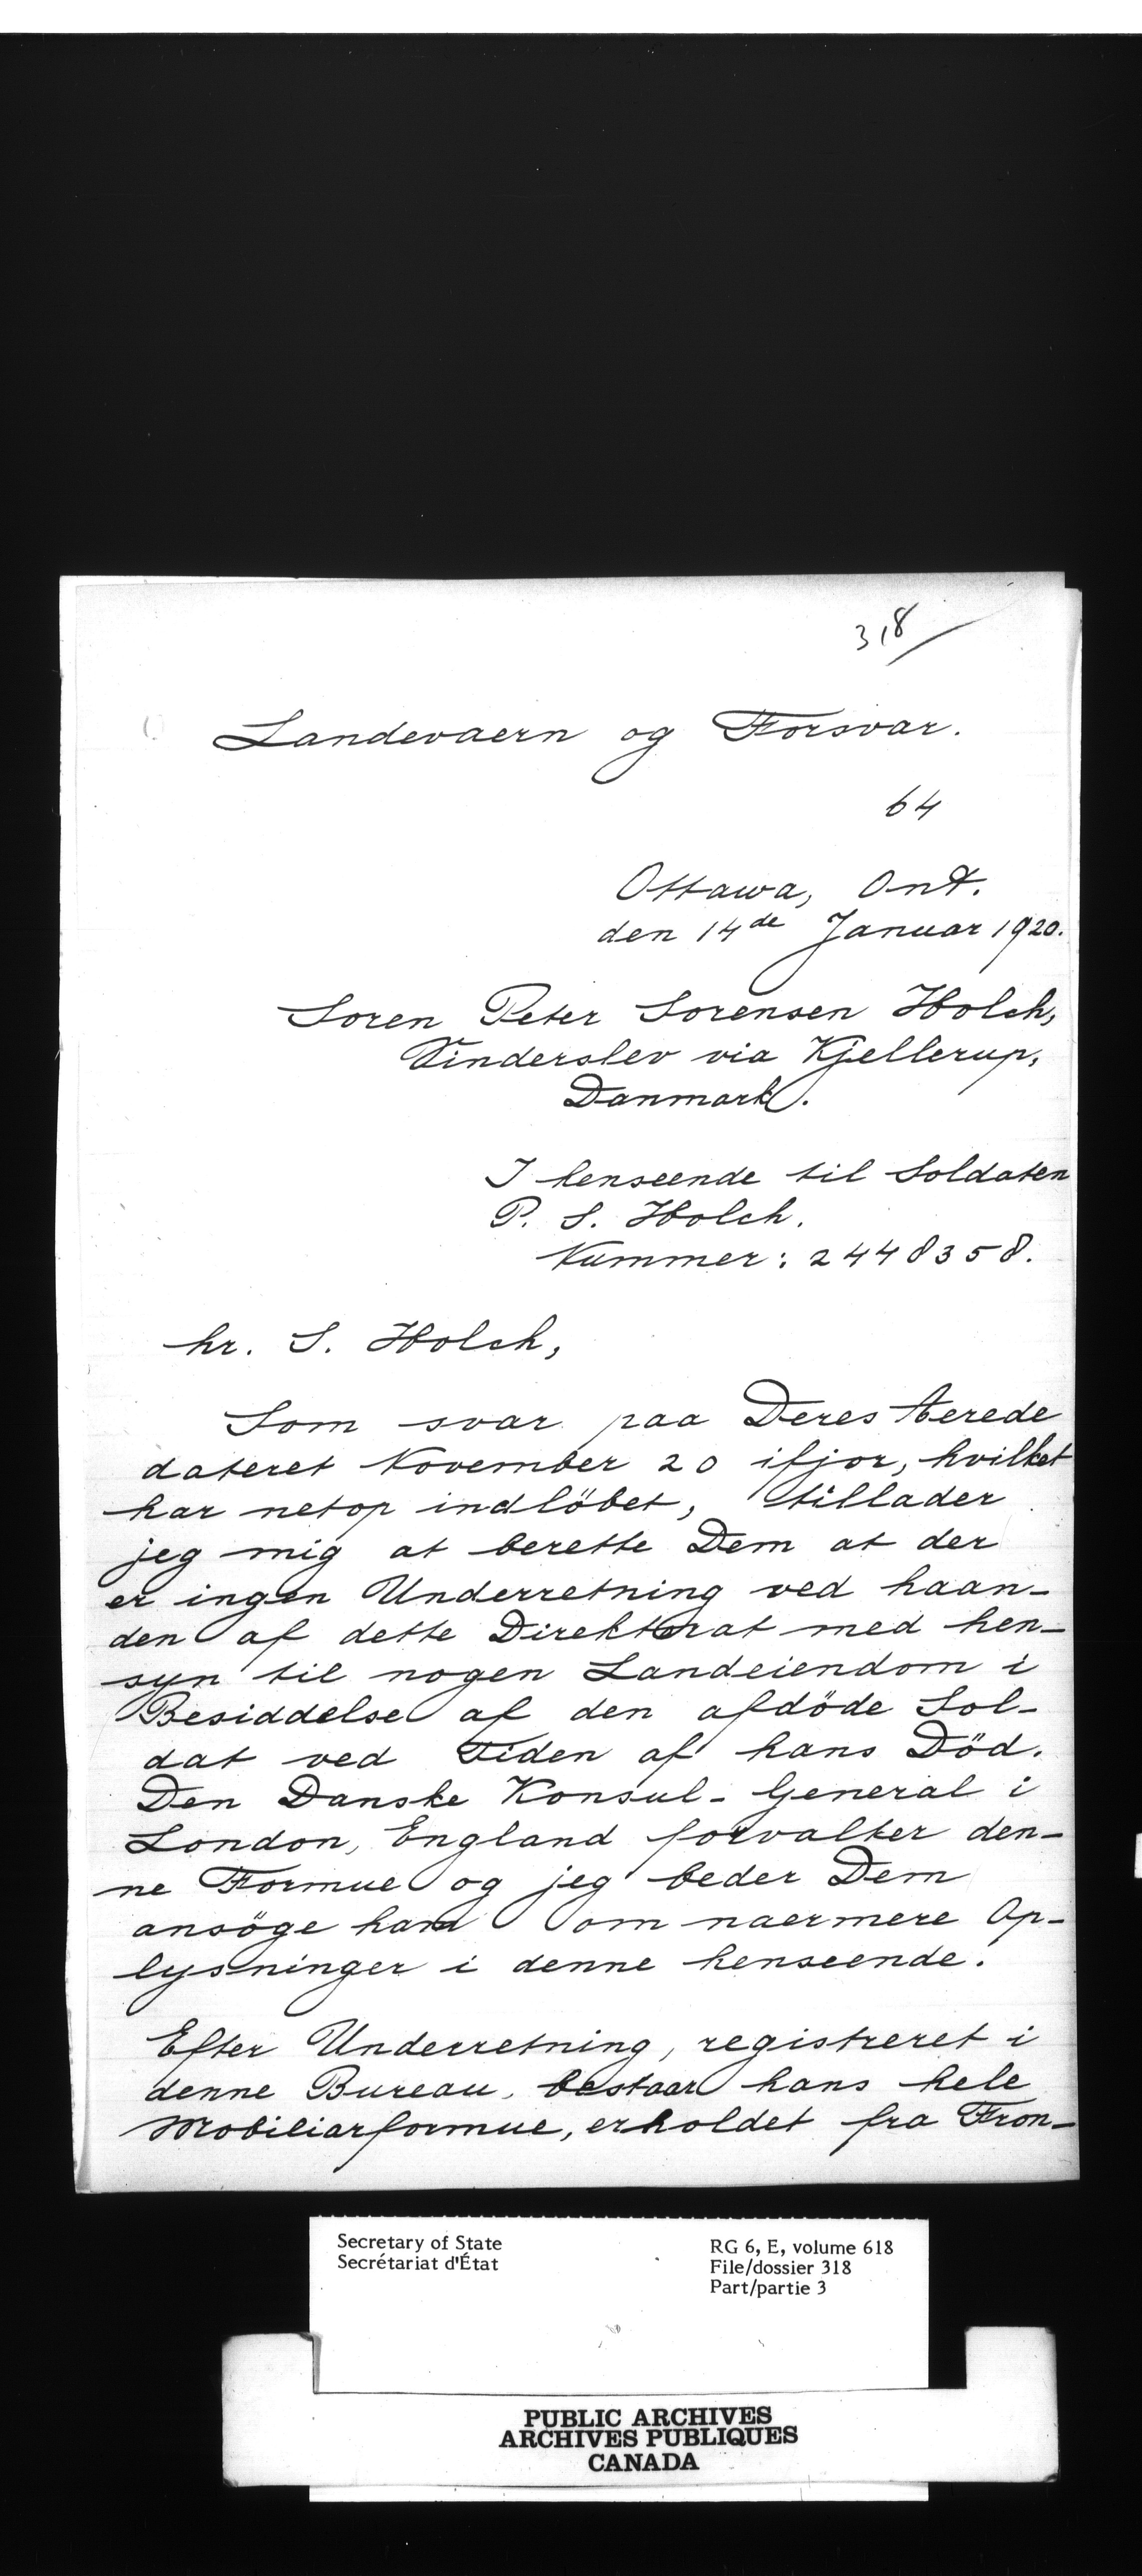 318/
Landevaern og Forsvar.
64
Ottawa, Ont.
den 14de Januar 1920.
Soren Peter Sorensen Holch,
Vinderslev via Kjellerup,
Danmark.
I henseende til Soldaten
P. S. Holch.
Nummer: 2448358.
hr. S. Holch,
Som svar paa Deres Aerede
dateret November 20 ifjor, hvilket
har netop indlöbet, tillader
jeg mig at berette Dem at der
er ingen Underretning ved haan-
den af dette Direktorat med hen-
syn til nogen Landeiendom i
Besiddelse af den afdöde Sol-
dat ved Tiden af hans Död.
Den Danske Konsul-General i
London, England forvalter den-
ne Formue og jeg beder Dem
ansöge ham om naermere Op-
lysninger i denne henseende.
Efter Underretning, registreret i
denne Bureau, bestaar hans hele
Mobiliarformue, erholdet fra Fron-
Secretary of State
Secrétariat d'État
RG 6, E, volume 618
File/dossier 318
Part/partie 3
PUBLIC ARCHIVES
ARCHIVES PUBLIQUES
CANADA